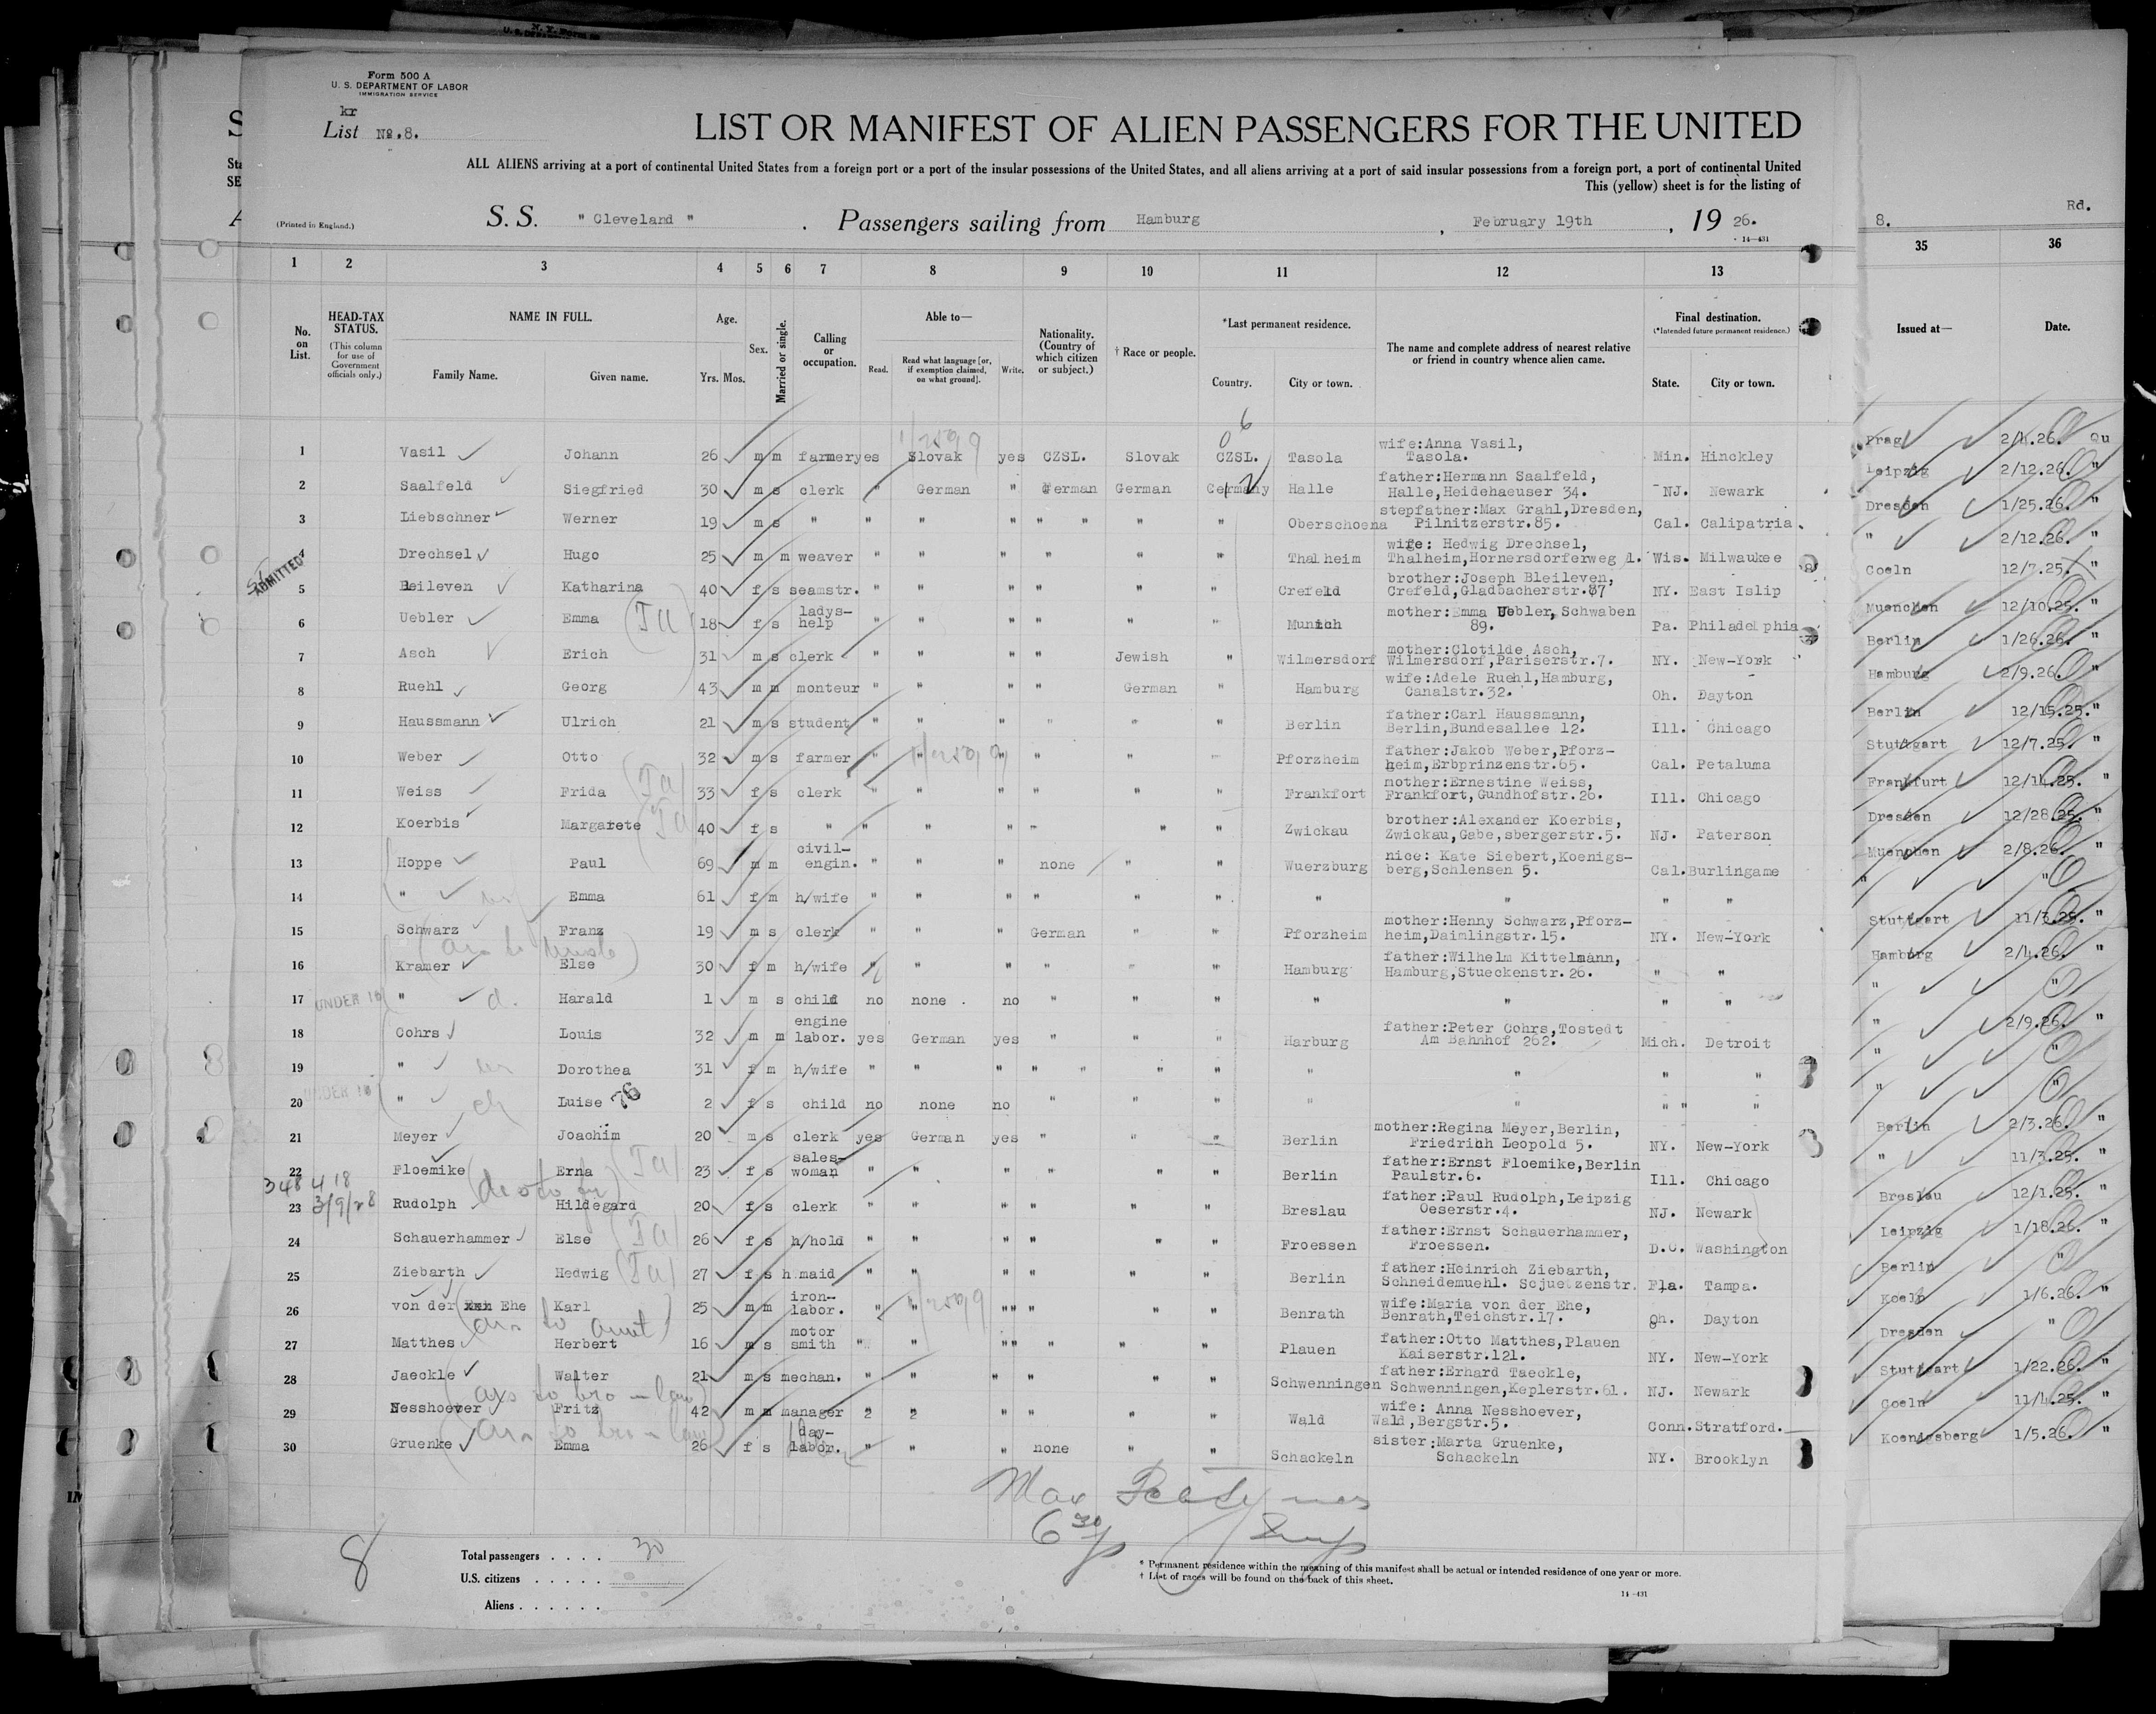 Form 500 A
U. S. DEPARTMENT OF LABOR
IMMIGRATION SERVICE
kr
List No.8.
LIST OR MANIFEST OF ALIEN PASSENGERS FOR THE UNITED
ALL ALIENS arriving at a port of continental United States from a foreign port or a port of the insular possessions of the United States, and all aliens arriving at a port of said insular possessions from a foreign port, a port of continental United
This (yellow) sheet is for the listing of
(Printed in England.)
S. S. " Cleveland " . Passengers sailing from Hamburg , February 19th , 19 26.
14—431
8. Rd.
1 2 3 4 5 6 7 8 9 10 11 12 13 35 36
No. on List.
HEAD-TAX STATUS.
(This column for use of Government officials only.)
NAME IN FULL.
Family Name. Given name.
Age.
Yrs. Mos.
Sex.
Married or single.
Calling or occupation.
Able to—
Read. Read what language [or, if exemption claimed, on what ground]. Write.
Nationality. (Country of which citizen or subject.)
† Race or people.
*Last permanent residence.
Country. City or town.
The name and complete address of nearest relative or friend in country whence alien came.
Final destination.
(*Intended future permanent residence.)
State. City or town.
Issued at— Date.
1 Vasil Johann 26 m m farmer yes Slovak yes CZSL. Slovak CZSL. Tasola wife:Anna Vasil, Tasola. Min. Hinckley Prag 2/4.26. Qu
2 Saalfeld Siegfried 30 m s clerk " German " German German Germany Halle father:Hermann Saalfeld, Halle,Heidehaeuser 34. NJ. Newark Leipzig 2/12.26. "
3 Liebschner Werner 19 m s " " " " " " " " Oberschoena stepfather:Max Grahl,Dresden, Pilnitzerstr.85. Cal. Calipatria. Dresden 1/25.26. "
4 Drechsel Hugo 25 m m weaver " " " " " " Thalheim wife: Hedwig Drechsel, Thalheim,Hornersdorferweg 1. Wis. Milwaukee " 2/12.26. "
ADMITTED
5 Bleileven Katharina 40 f s seamstr. " " " " " " Crefeld brother:Joseph Bleileven, Crefeld,Gladbacherstr.87 NY. East Islip Coeln 12/7.25. "
6 Uebler Emma 18 f s ladys-help " " " " " " Munich mother:Emma Uebler,Schwaben 89. Pa. Philadelphia Muenchen 12/10.25. "
7 Asch Erich 31 m s clerk " " " " Jewish " Wilmersdorf mother:Clotilde Asch, Wilmersdorf,Pariserstr.7. NY. New-York Berlin 1/26.26. "
8 Ruehl Georg 43 m m monteur " " " " German " Hamburg wife:Adele Ruehl,Hamburg, Canalstr.32. Oh. Dayton Hamburg 2/9.26. "
9 Haussmann Ulrich 21 m s student " " " " " " Berlin father:Carl Haussmann, Berlin,Bundesallee 12. Ill. Chicago Berlin 12/15.25. "
10 Weber Otto 32 m s farmer " " " " " " Pforzheim father:Jakob Weber,Pforz-heim,Erbprinzenstr.65. Cal. Petaluma Stuttgart 12/7.25. "
11 Weiss Frida 33 f s clerk " " " " " " Frankfort mother:Ernestine Weiss, Frankfort,Gundhofstr.26. Ill. Chicago Frankfurt 12/14.25. "
12 Koerbis Margarete 40 f s " " " " " " " Zwickau brother:Alexander Koerbis, Zwickau,Gabe,sbergerstr.5. NJ. Paterson Dresden 12/28.25. "
13 Hoppe Paul 69 m m civil-engin. " " " none " " Wuerzburg nice: Kate Siebert,Koenigs-berg,Schlensen 5. Cal. Burlingame Muenchen 2/8.26. "
14 " Emma 61 f m h/wife " " " " " " " " " " " "
15 Schwarz Franz 19 m s clerk " " " German " " Pforzheim mother:Henny Schwarz,Pforz-heim,Daimlingstr.15. NY. New-York Stuttgart 11/3.25. "
16 Kramer Else 30 f m h/wife " " " " " " Hamburg father:Wilhelm Kittelmann, Hamburg,Stueckenstr.26. " " Hamburg 2/4.26. "
17 UNDER 16 " Harald 1 m s child no none . no " " " " " " " " "
18 Cohrs Louis 32 m m engine labor. yes German yes " " " Harburg father:Peter Cohrs,Tostedt Am Bahnhof 262. Mich. Detroit " 2/9.26. "
19 " Dorothea 31 f m h/wife " " " " " " " " " " " " "
20 UNDER 16 " Luise 76 2 f s child no none no " " " " " " " " " "
21 Meyer Joachim 20 m s clerk yes German yes " " " Berlin mother:Regina Meyer,Berlin, Friedrich Leopold 5. NY. New-York Berlin 2/3.26. "
22 Floemike Erna 23 f s sales-woman " " " " " " Berlin father:Ernst Floemike,Berlin Paulstr.6. Ill. Chicago " 11/3.25. "
348418
3/9/28
23 Rudolph Hildegard 20 f s clerk " " " " " " Breslau father:Paul Rudolph,Leipzig Oeserstr.4. NJ. Newark Breslau 12/1.25. "
24 Schauerhammer Else 26 f s h/hold " " " " " " Froessen father:Ernst Schauerhammer, Froessen. D.C. Washington Leipzig 1/18.26. "
25 Ziebarth Hedwig 27 f s h maid " " " " " " Berlin father:Heinrich Ziebarth, Schneidemuehl. Scjuetzenstr. Fla. Tampa. Berlin "
26 von der Ehe Karl 25 m m iron-labor. " " " " " " " Benrath wife:Maria von der Ehe, Benrath,Teichstr.17. Oh. Dayton Koeln 1/6.26. "
27 Matthes Herbert 16 m s motor smith " " " " " " " Plauen father:Otto Matthes,Plauen Kaiserstr.121. NY. New-York Dresden "
28 Jaeckle Walter 21 m s mechan. " " " " " " Schwenningen father:Erhard Taeckle, Schwenningen,Keplerstr.61. NJ. Newark Stuttgart 1/22.26. "
29 Nesshoever Fritz 42 m m manager 2 2 " " " " Wald wife: Anna Nesshoever, Wald,Bergstr.5. Conn. Stratford. Coeln 11/4.25. "
30 Gruenke Emma 26 f s day-labor. " " " none " " Schackeln sister:Marta Gruenke, Schackeln NY. Brooklyn Koenigsberg 1/5.26. "
8
Total passengers . . . . 30
U.S. citizens . . . . .
Aliens . . . . . .
* Permanent residence within the meaning of this manifest shall be actual or intended residence of one year or more.
† List of races will be found on the back of this sheet.
14—431